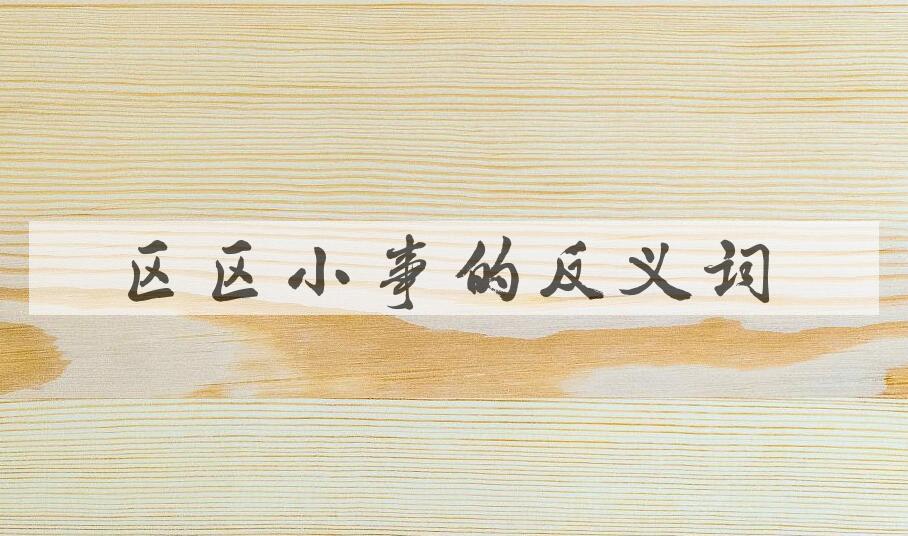 区区小事的反义词